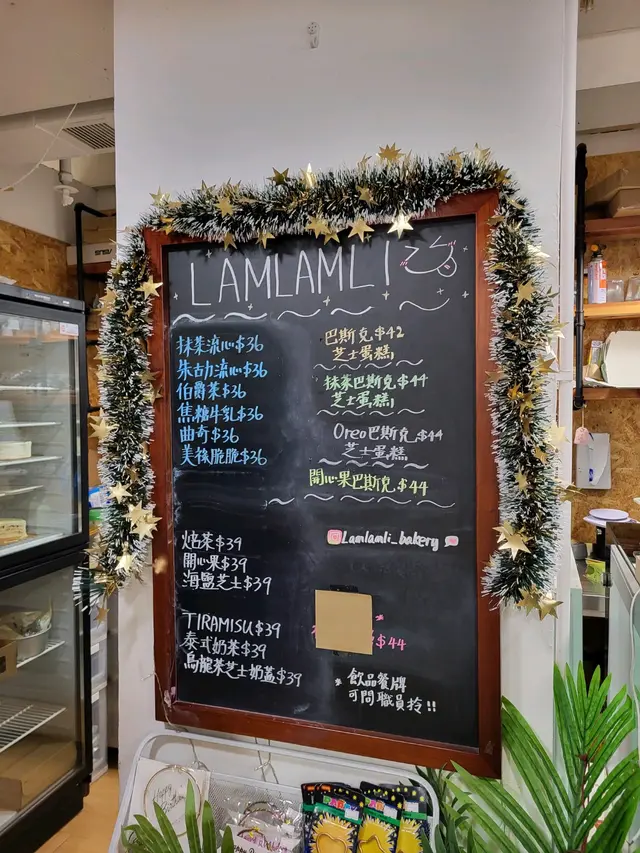 LAMLAMLI
抹茶流心$36
朱古力流心$36
伯爵茶$36
焦糖牛乳$36
曲奇$36
美祿脆脆$36
焙茶$39
開心果$39
海鹽芝士$39
TIRAMISU$39
泰式奶茶$39
烏龍茶芝士奶蓋$39
巴斯克$42
芝士蛋糕
抹茶巴斯克$44
芝士蛋糕
Oreo巴斯克$44
芝士蛋糕
開心果巴斯克$44
Lamlamli_bakery
$44
飲品餐牌
可問職員拎!!